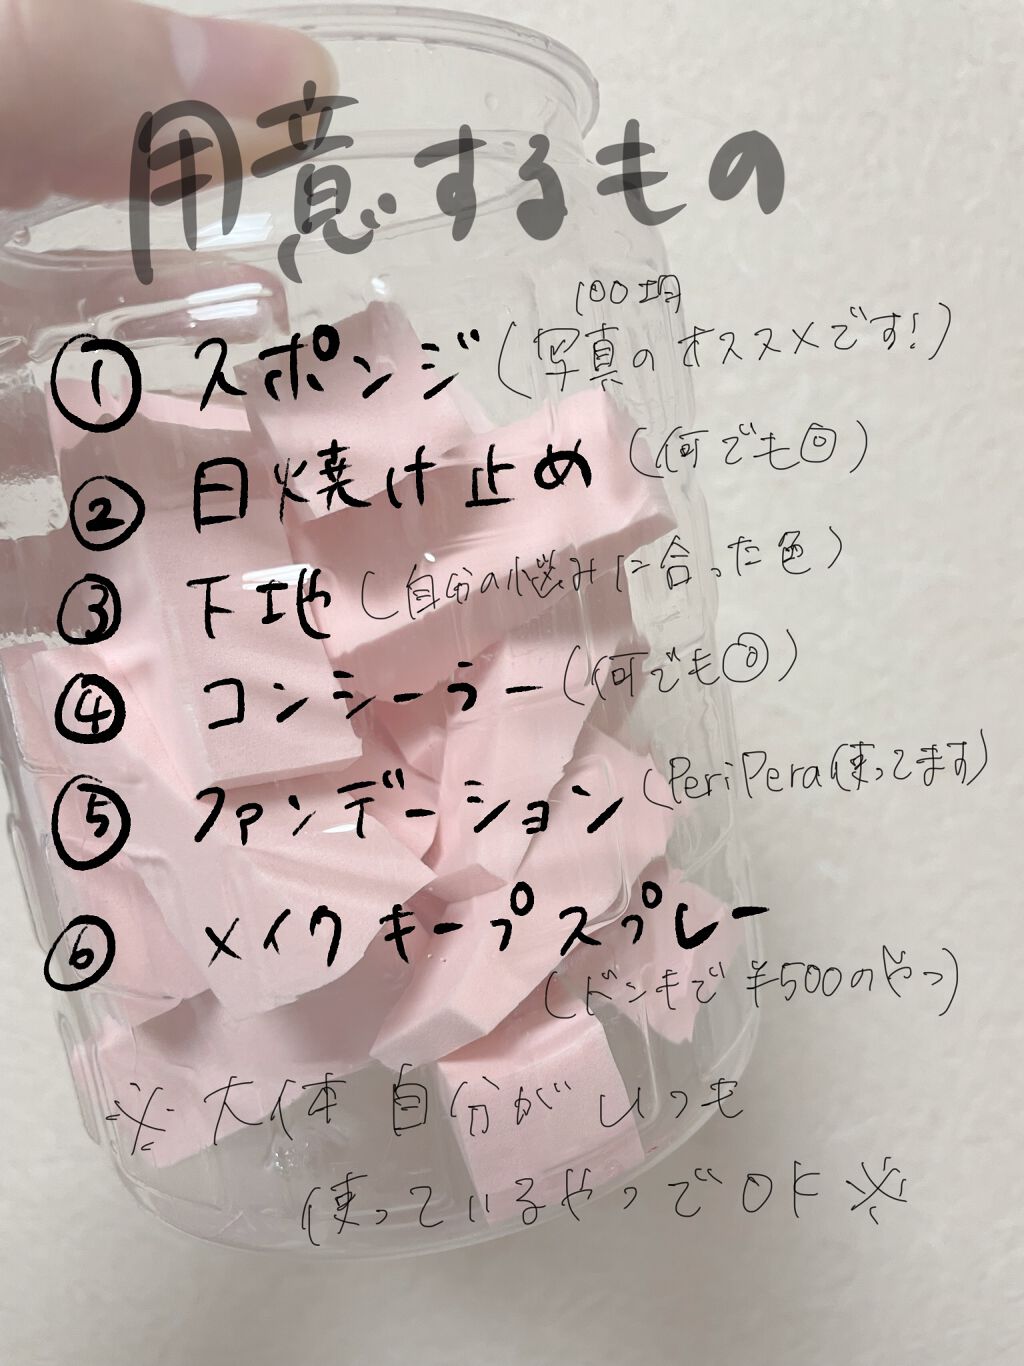 用意するもの
100均
① スポンジ (写真のオススメです!)
② 日焼け止め (何でも◎)
③ 下地 (自分の悩みに合った色)
④ コンシーラー (何でも◎)
⑤ ファンデーション (PeriPera使ってます)
⑥ メイクキープスプレー
(ドンキで¥500のやつ)
※ 大体 自分がいつも
使っているやつでOK ※